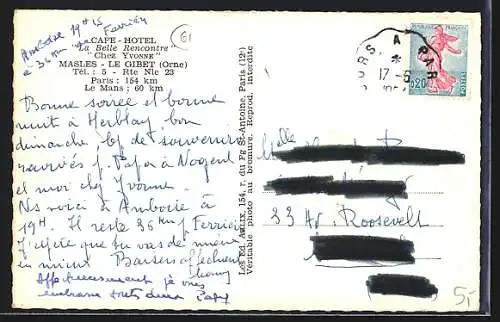 Amboise 19H15
à 36 km de Ferrière
61
CAFE - HOTEL
"La Belle Rencontre"
"Chez YVONNE"
MASLES - LE GIBET (Orne)
Tél. : 5 - Rte Nle 23
Paris : 154 km
Le Mans : 60 km
Bonne soirée et bonne
nuit à Herblay, bon
dimanche, bp de souvenirs
ravivés p. Papa à Nogent
et moi chez Yvonne.
Ns voici à Amboise à
19H. Il reste 36 km p. Ferrière
que tu vas de mieux
en mieux. Baisers
affectueusement je vous
embrasse
Les Ed. 154, r. du Fg St-Antoine, Paris (12e)
Véritable photo au bromure. Reprod. interdite
TOURS A PAR
17-6
0,20
Mlle
33 Av. Roosevelt
5,-